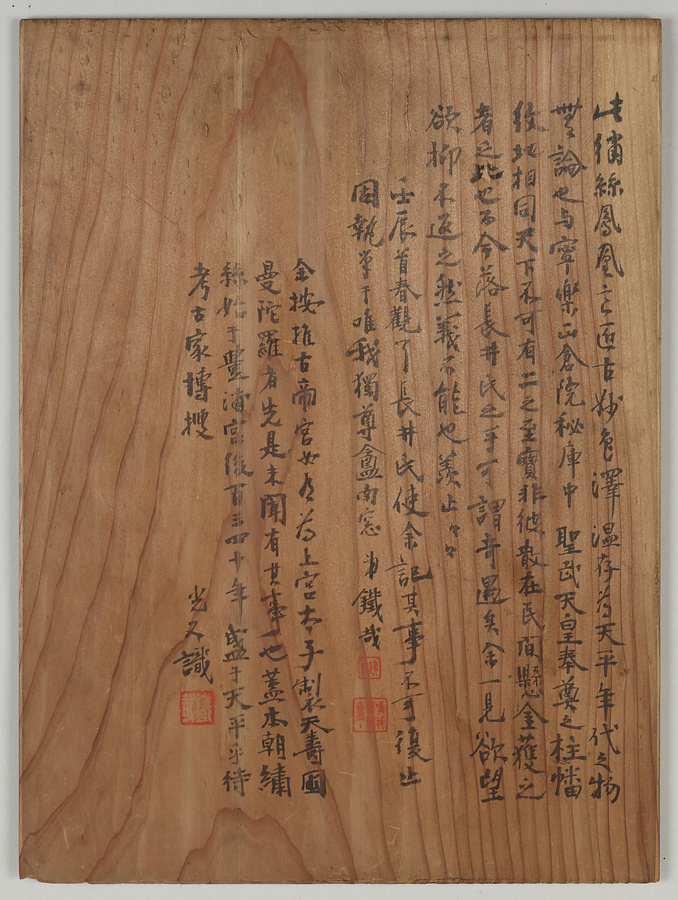 此繡絲鳳凰之逈古妙色澤温存為天平年代之物
無論也与寧樂正倉院秘庫中聖武天皇奉奠之柱幡
紋地相同天下不可有二之至寶非彼散在民間懸金獲之
者之比也而今落長井氏之手可謂奇遇矣余一見欲望
欲抑不返之然義不能也羨止々々
壬辰首春觀了長井氏使余記其事不可復止
因執筆于唯我獨尊龕南窓 鐵哉
余按推古帝宮女為上宮太子製天壽国
曼陀羅者先是未聞有其事也蓋本朝繡
絲始于豊浦宮後百三四十年盛于天平乎待
考古家博捜
光又識